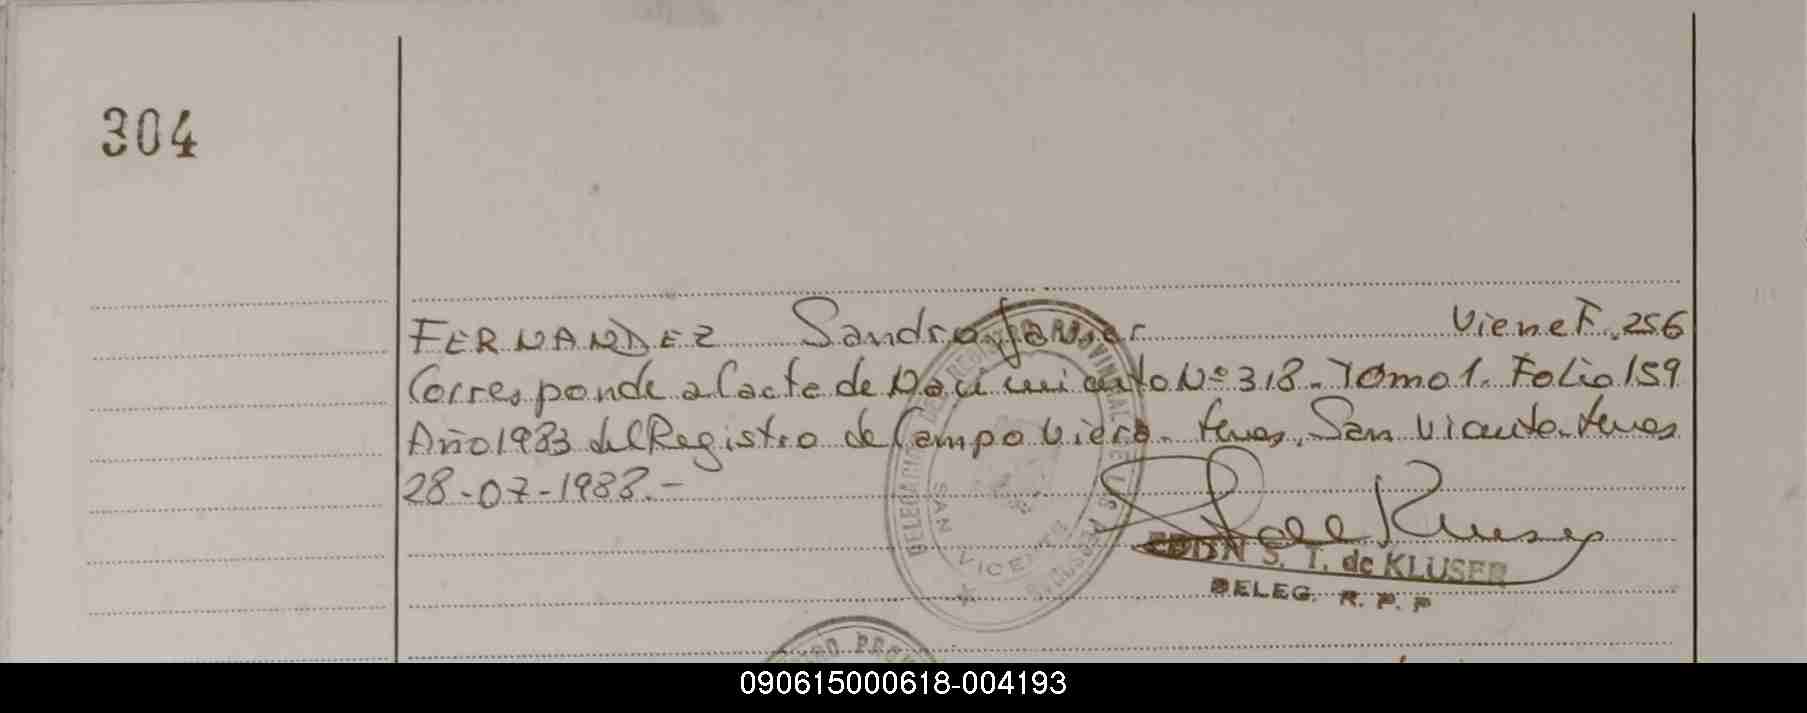 304
FERNANDEZ Sandro Javier Viene F. 256
Corresponde al acta de Nacimiento Nº 318. Tomo 1. Folio 159
Año 1983 del Registro de Campo Viera. San Vicente
28-07-1983.-
DELEGACION DEL REGISTRO PROVINCIAL DE LAS PERSONAS
SAN VICENTE
S. T. de KLUSER
DELEG. R. P. P
090615000618-004193